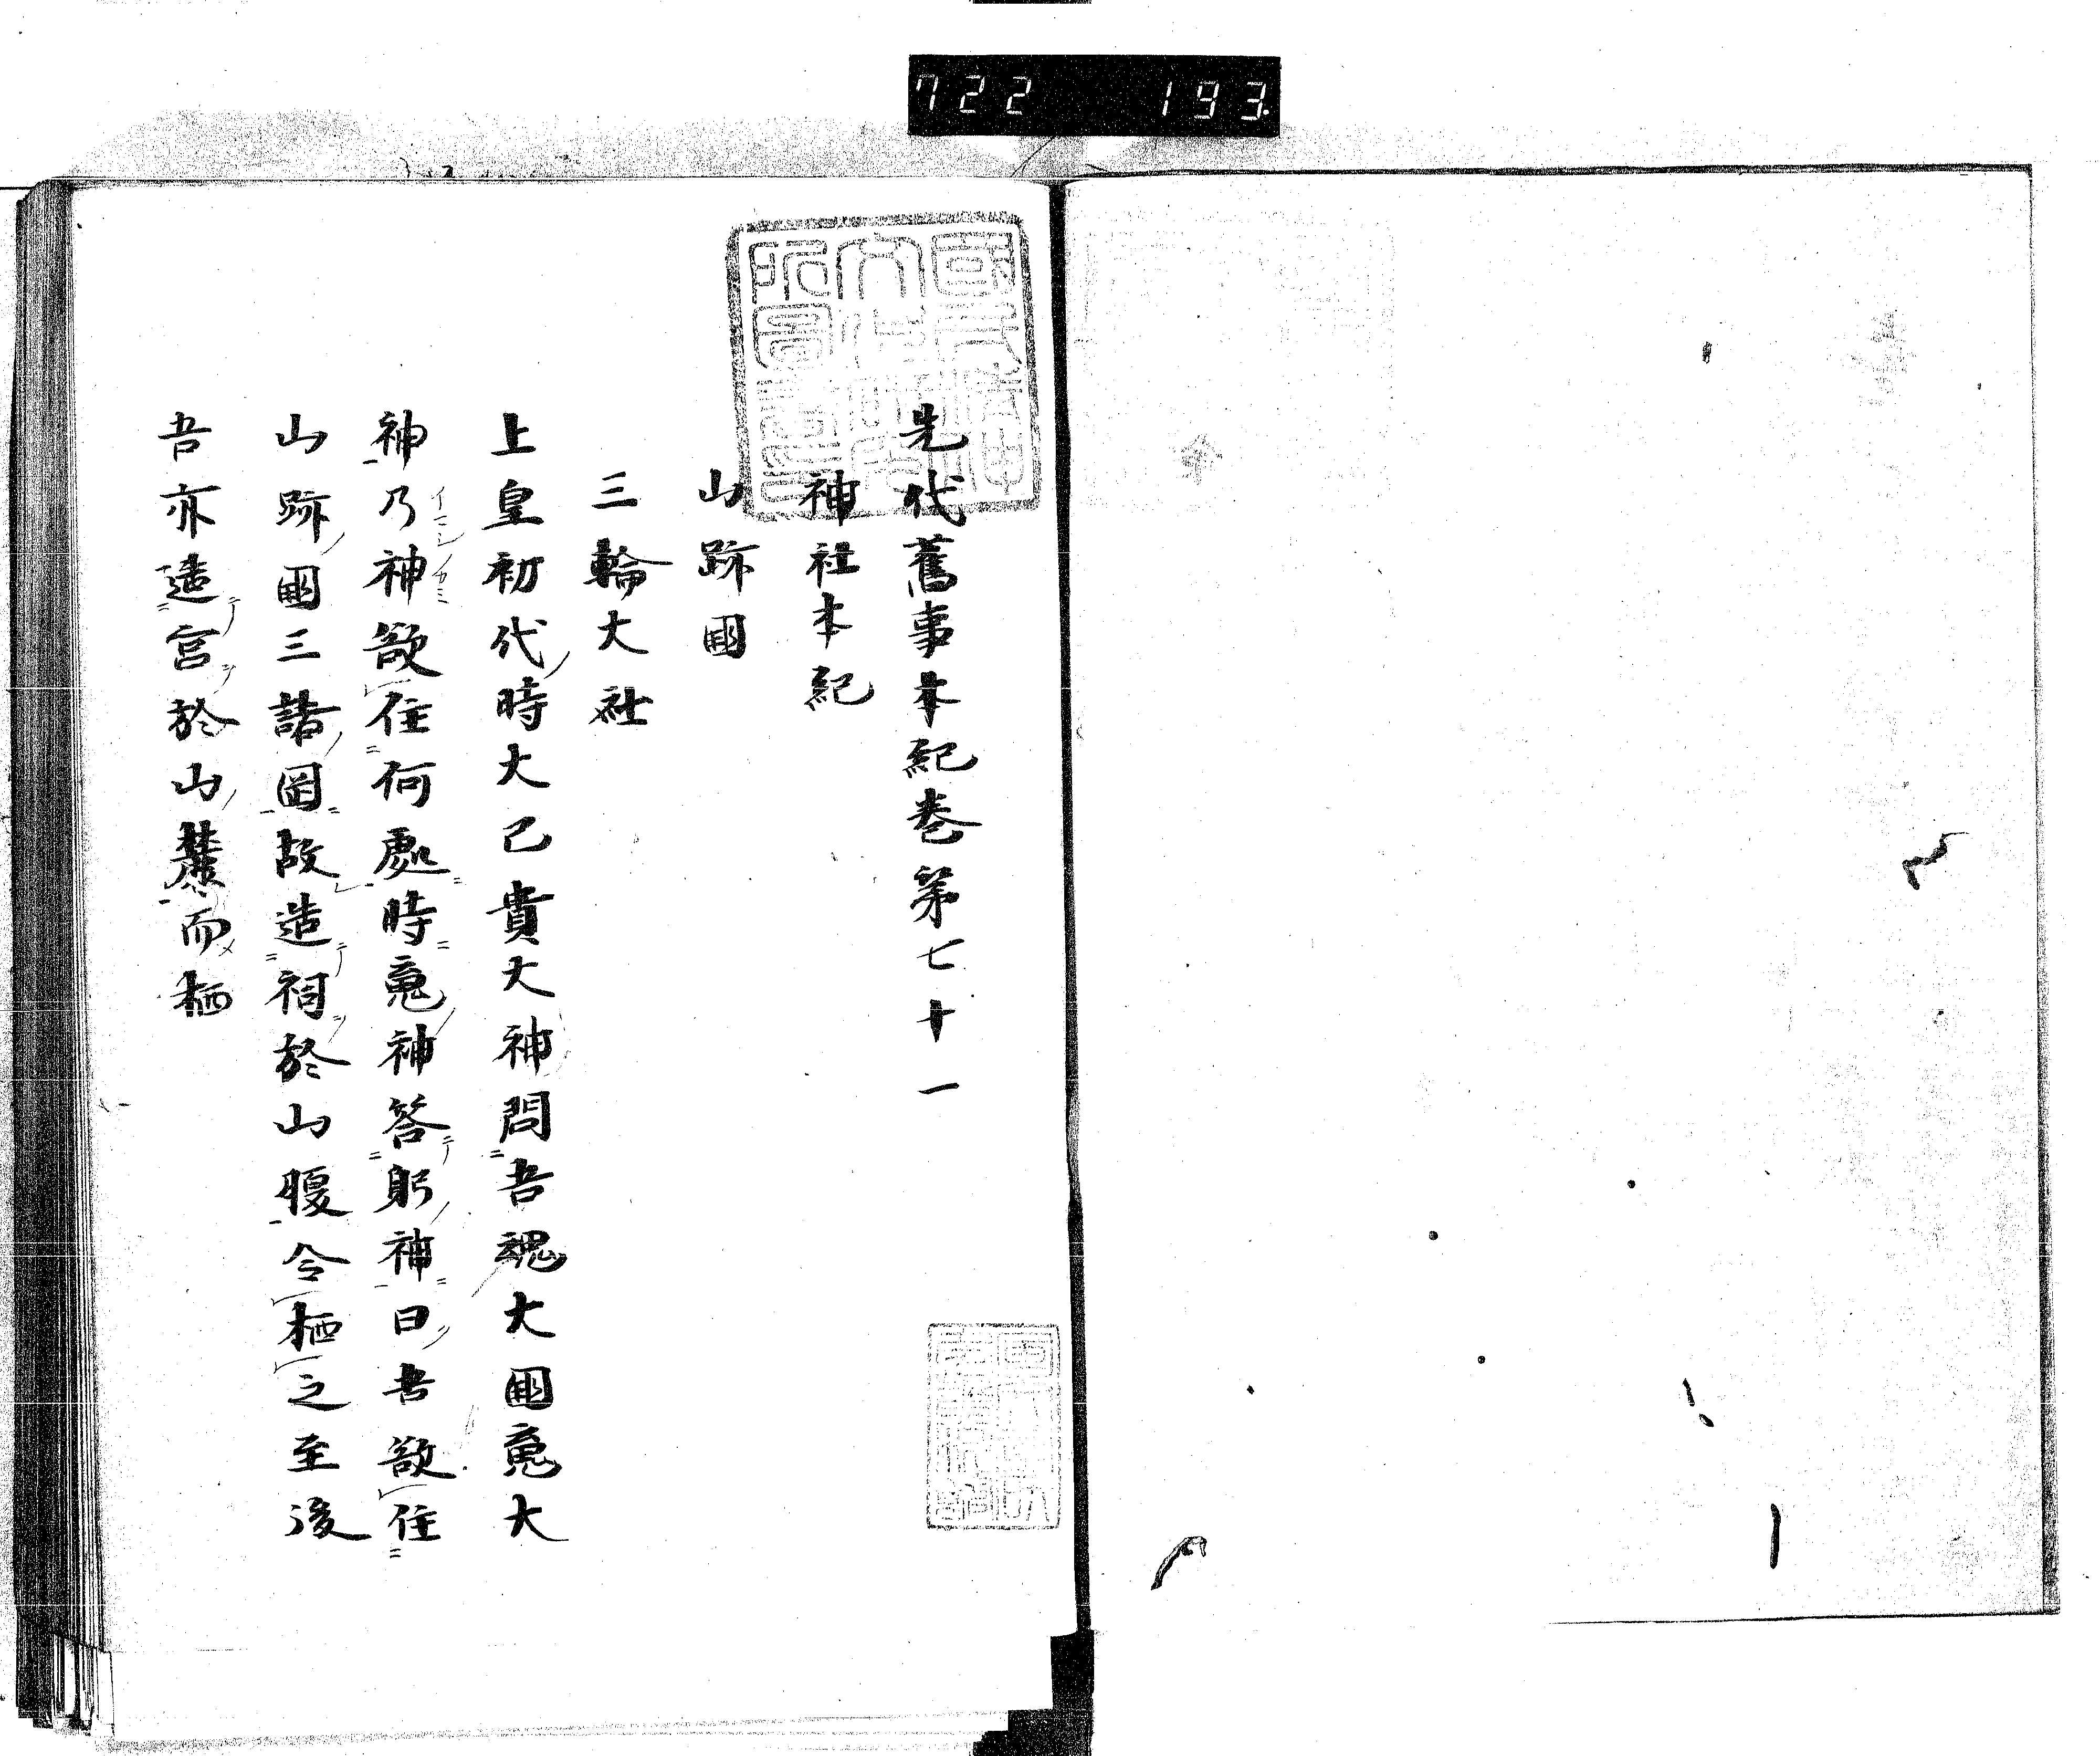 722 193
先代舊事本紀巻第七十一
神社本紀
山跡國
三輪大社
上皇初代時大己貴大神問吾魂大國竟大
神乃神欲住何處時竟神答躬神曰吾欲住
山跡國三諸岡故造祠於山腹令栖之至後
吾亦造宮於山麓而栖